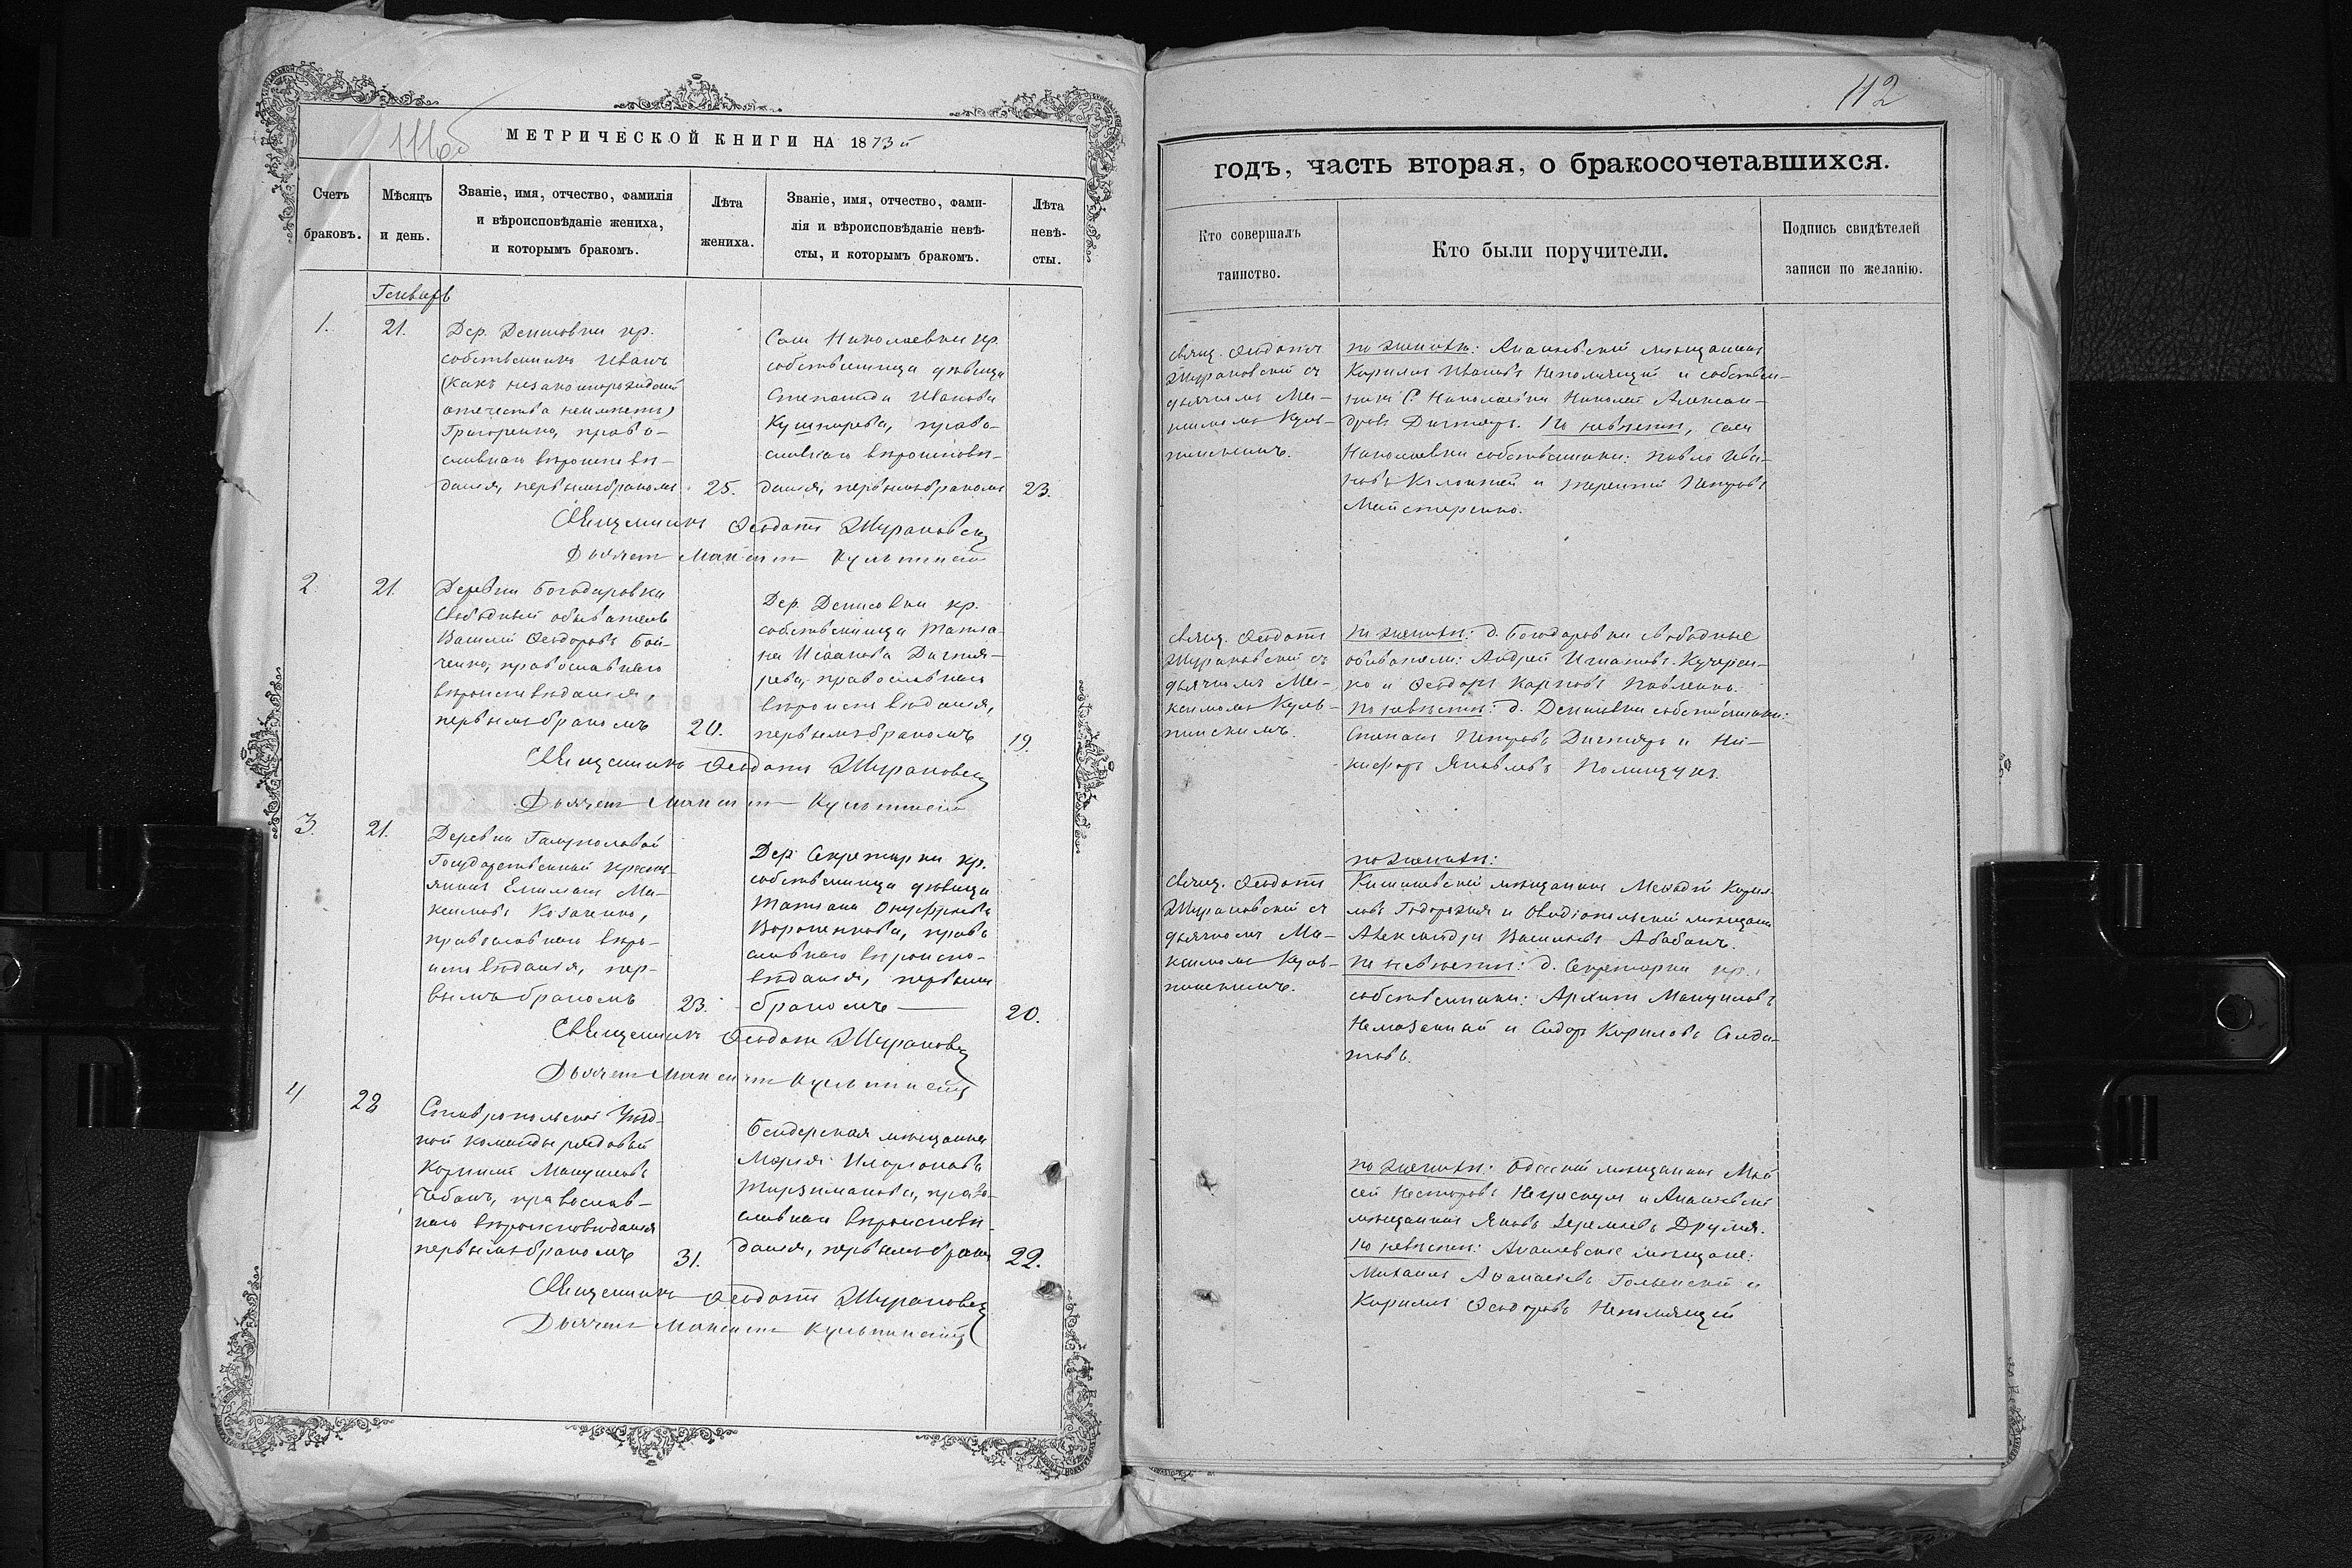 111об
МЕТРИЧЕСКОЙ КНИГИ НА 1873й
Счетъ
браковъ.
Мѣсяцъ
и день.
Званіе, имя, отчество, фамилія
и вѣроисповѣданіе жениха,
и которымъ бракомъ.
Лѣта
жениха.
Званіе, имя, отчество, фами-
лія и вѣроисповѣданіе невѣ-
сты, и которымъ бракомъ.
Лѣта
невѣ-
сты.
Генварь
1.
21.
Дер. Денисовки кр.
собственникъ Иванъ
(какъ незаконнорожденный
отечества неимѣетъ)
Григоренко, право-
славнаго вѣроисповѣ-
данія, первымъ бракомъ
25.
Села Николаевки кр.
собственница дѣвица
Степанида Иванова
Кушнирева, право-
славнаго вѣроисповѣ-
данія, первымъ бракомъ
23.
Священникъ Ѳеодотъ Жураковскій
Дьячекъ Максимъ Кульпинскій
2.
21.
Деревни Богодаровки
Свободный обыватель
Василій Ѳеодоровъ Бой-
ченко, православнаго
вѣроисповѣданія,
первымъ бракомъ
20.
Дер. Денисовки кр.
собственница Татья-
на Исаакова Дигтя-
рева, православнаго
вѣроисповѣданія,
первымъ бракомъ
19.
Священникъ Ѳеодотъ Жураковскій
Дьячекъ Максимъ Кульпинскій
3.
21.
Деревни
Государственный кресть-
янинъ Ма-
ксимовъ Козаченко,
православнаго вѣро-
исповѣданія, пер-
вымъ бракомъ
23.
Дер. Секретарки кр.
собственница дѣвица
Татіана Онуфріева
Вороненкова, право-
славнаго вѣроиспо-
вѣданія, первымъ
бракомъ
20.
Священникъ Ѳеодотъ Жураковскій
Дьячекъ Максимъ Кульпинскій
4
28
Ставропольской Уѣзд-
ной команды рядовый
Корнилій Мануиловъ
Чебанъ, православ-
наго вѣроисповѣданія
первымъ бракомъ
31.
Бендерская мѣщанка
Марія Иларіонова
Тирзиманова, право-
славнаго вѣроисповѣ-
данія, первымъ бракомъ
22.
Священникъ Ѳеодотъ Жураковскій
Дьячекъ Максимъ Кульпинскій
112
годъ, часть вторая, о бракосочетавшихся.
Кто совершалъ
таинство.
Кто были поручители.
Подпись свидѣтелей
записи по желанію.
Свящ. Ѳеодотъ
Жураковскій съ
дьячкомъ Ма-
ксимомъ Куль-
пинскимъ.
по женихѣ: Ананьевскій мѣщанинъ
Кирилъ Ивановъ Непомящій и собствен-
никъ С. Николаевки Николай Алексан-
дровъ Дигтярь. По невѣстѣ, села
Николаевки собственники: Павло Ива-
новъ и Терентій Петровъ
Майстеренко.
Свящ. Ѳеодотъ
Жураковскій съ
дьячкомъ Ма-
ксимомъ Куль-
пинскимъ.
по женихѣ: д. Богодаровки свободные
обыватели: Андрей Игнатовъ Кучерен-
ко и Ѳеодоръ Карповъ Павленко.
По невѣстѣ: д. Денисовки собственники:
Степанъ Петровъ Дигтярь и Ни-
кифоръ Яковлевъ Полищукъ.
Свящ. Ѳеодотъ
Жураковскій съ
дьячкомъ Ма-
ксимомъ Куль-
пинскимъ.
по женихѣ:
Кишиневскій мѣщанинъ Кирил-
ловъ и Овидіопольскій мѣщанинъ
Александръ Васильевъ Абабанъ.
По невѣстѣ: д. Секретарки кр.
собственники: Архипъ Мануиловъ
Немазанный и Сидоръ Кириловъ Солда-
товъ.
по женихѣ: Одесскій мѣщанинъ Мой-
сей Несторовъ Негрескулъ и Ананьевскій
мѣщанинъ Яковъ Еремѣевъ Друмя.
По невѣстѣ: Ананьевскіе мѣщане:
Михаилъ Аѳанасіевъ Гольскій и
Кирилъ Ѳеодоровъ Непомящій